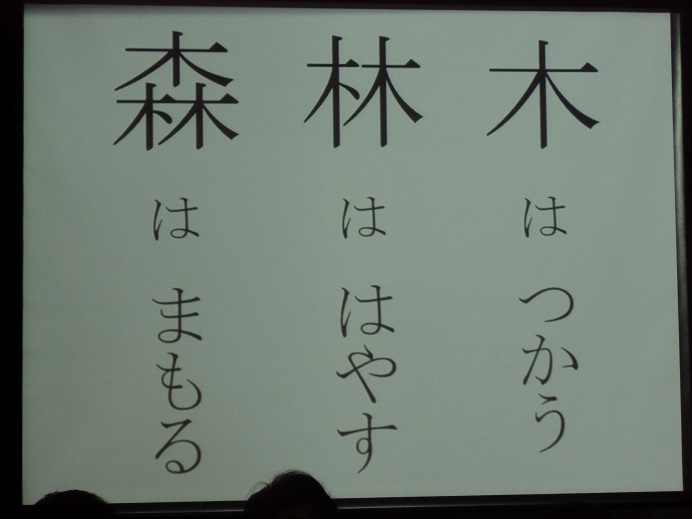 木は つかう
林は はやす
森は まもる